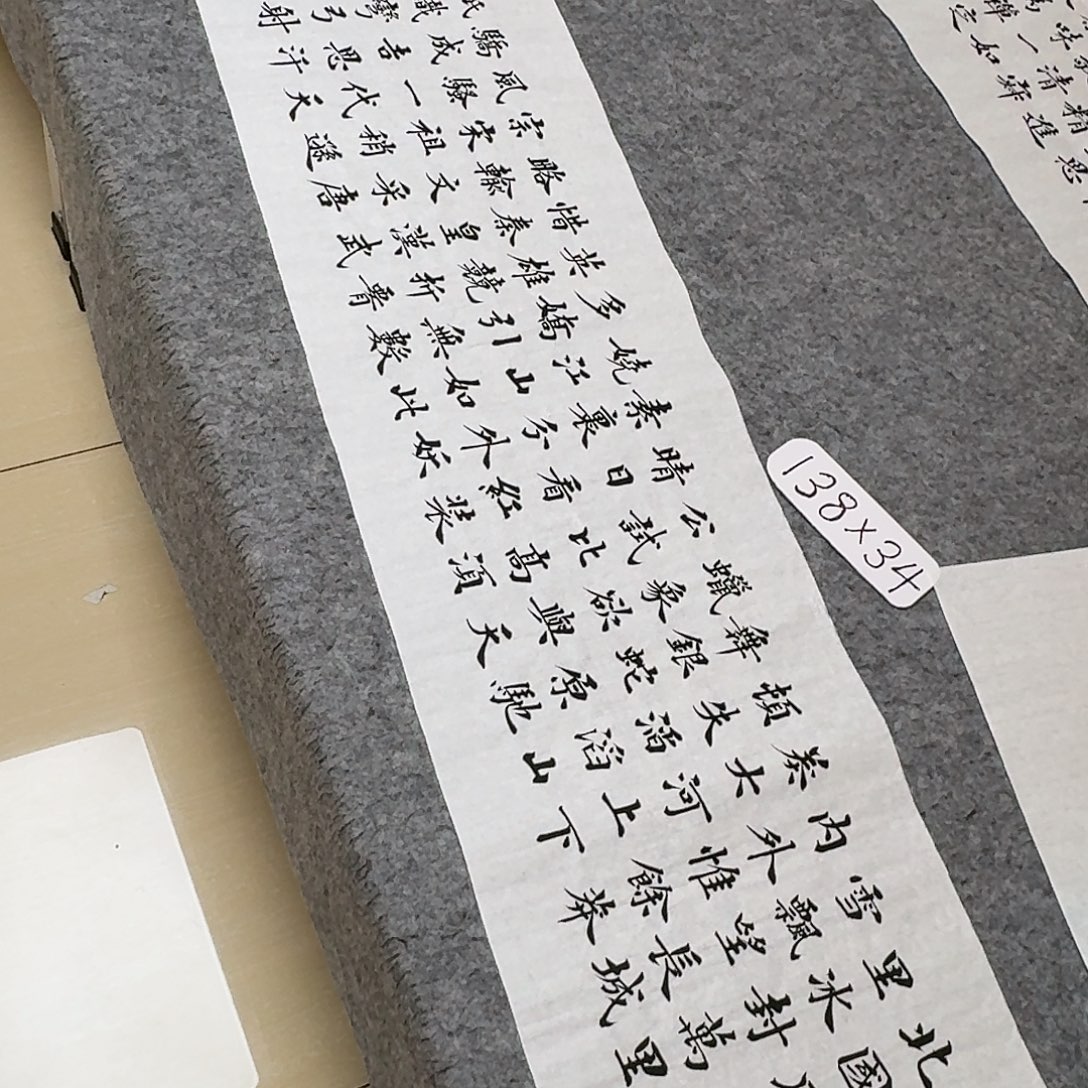 北國
里冰封萬里
雪飄望長城
內外惟餘莽
莽大河上下
頓失滔滔山
舞銀蛇原馳
蠟象欲與天
公試比高須
晴日看紅裝
素裹分外妖
嬈江山如此
多嬌引無數
英雄競折腰
惜秦皇漢武
略輸文采唐
宗宋祖稍遜
風騷一代天
驕成吉思汗
祇識彎弓射
138×34